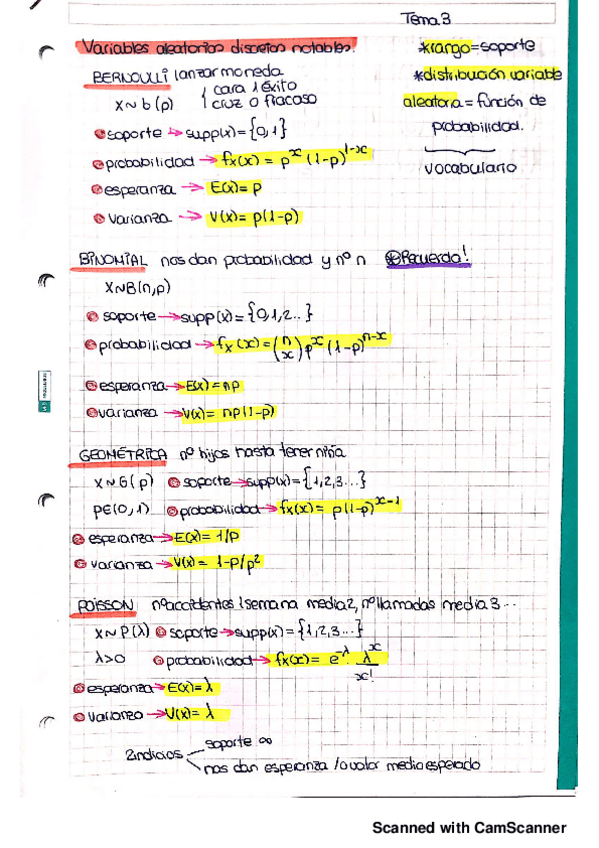 Tema 3
Variables aleatorias discretas notables.
*rango = soporte
*distribución variable
aleatoria = función de
probabilidad.
vocabulario
BERNOULLI lanzar moneda
X~b(p) { cara 1 éxito
cruz 0 fracaso
soporte → supp(x) = {0,1}
probabilidad → fx(x) = p^x (1-p)^1-x
esperanza → E(x) = p
varianza → V(x) = p(1-p)
BINOMIAL nos dan probabilidad y nº n Recuerda!
X~B(n,p)
soporte → supp(x) = {0,1,2..}
probabilidad → fx(x) = (n x) p^x (1-p)^n-x
esperanza → E(x) = np
varianza → V(x) = np(1-p)
GEOMÉTRICA nº hijos hasta tener niña
X~G(p) soporte → supp(x) = {1,2,3...}
p∈(0,1) probabilidad → fx(x) = p(1-p)^x-1
esperanza → E(x) = 1/p
varianza → V(x) = 1-p/p²
POISSON nº accidentes 1 semana media 2, nº llamadas media 3...
X~P(λ) soporte → supp(x) = {1,2,3...}
λ>0 probabilidad → fx(x) = e^-λ λ^x/x!
esperanza → E(x) = λ
varianza → V(x) = λ
2 indicios
soporte ∞
nos dan esperanza /o valor medio esperado
Scanned with CamScanner